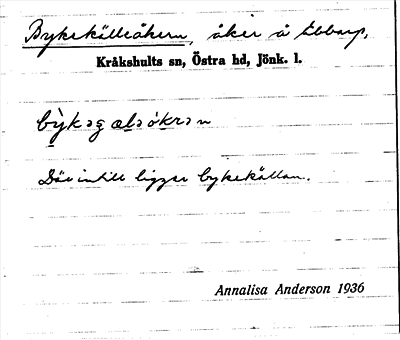 Bykekälleåkern, åker å Ebbarp,
Kråkshults sn, Östra hd, Jönk. l.
Där intill ligger bykekällan.
Annalisa Anderson 1936